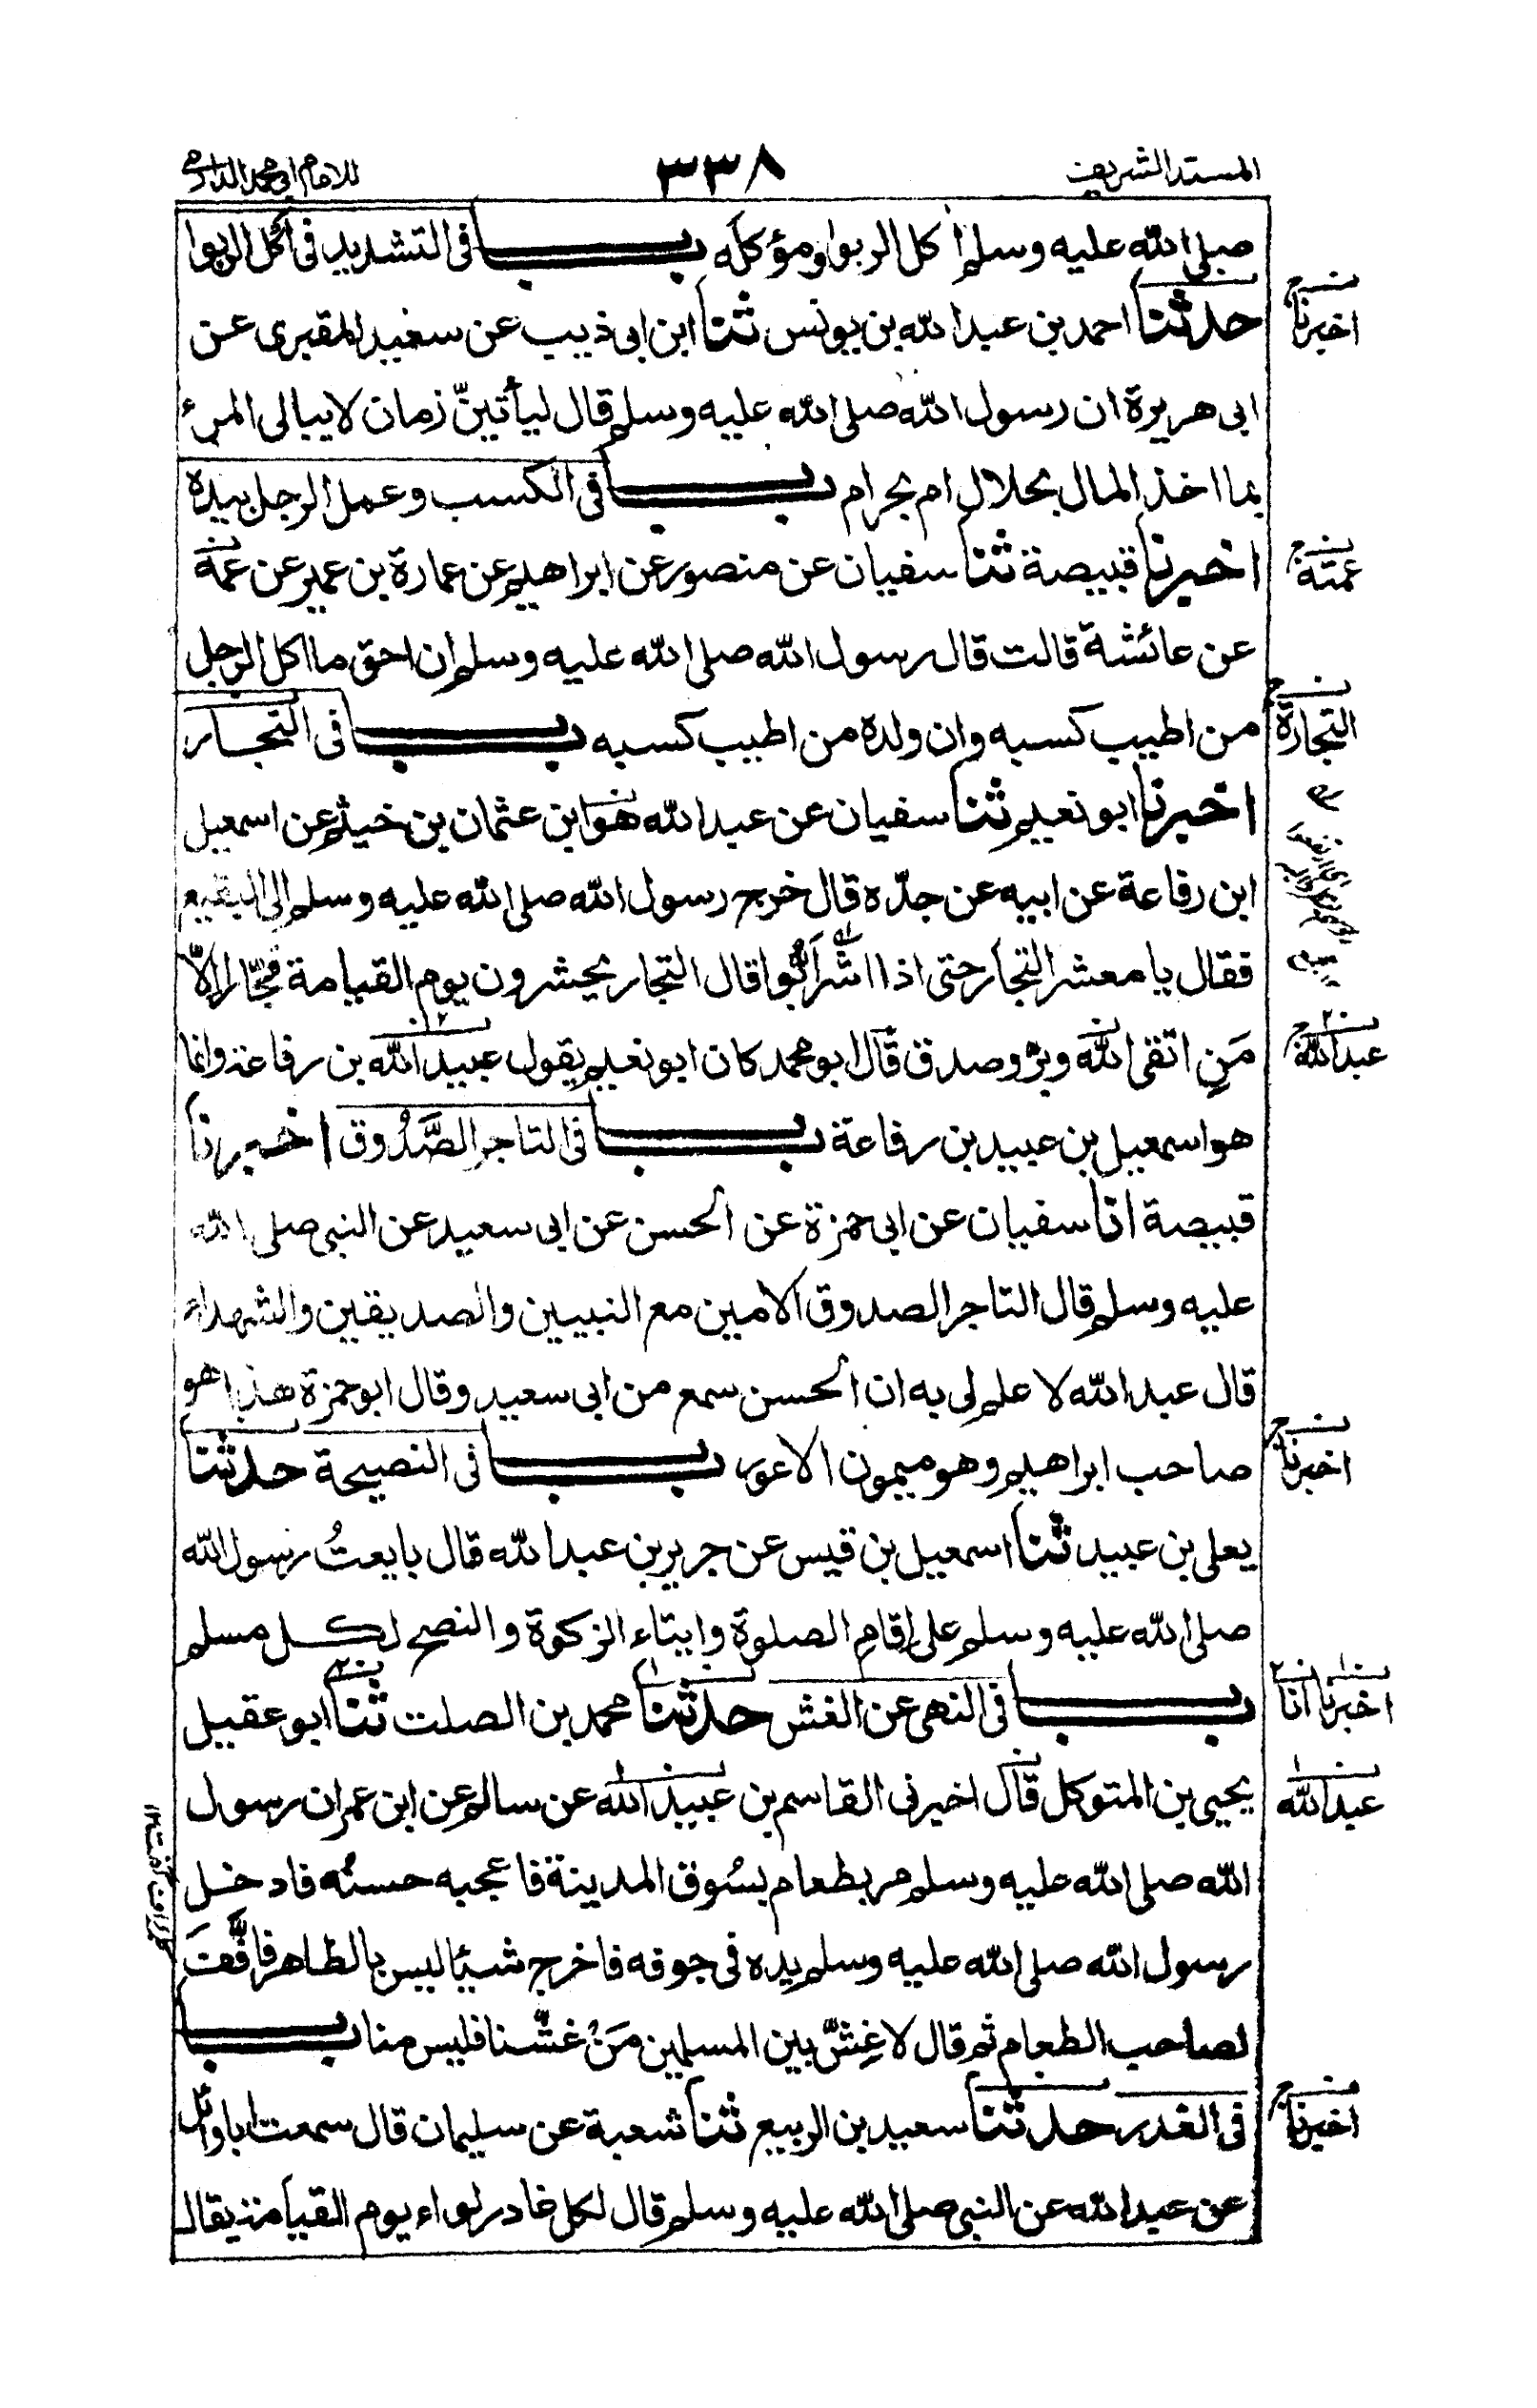 المسند الشريف
٣٣٨
للامام ابي محمد الدارمي
صلى الله عليه وسلم اٰكل الربوا ومؤكله باب فى التشديد فى اكل الربوا
حدثنا احمد بن عبد الله بن يونس ثنا ابن ابى ذيب عن سعيد المقبرى عن
اخبرنا
ابى هريرة ان رسول الله صلى الله عليه وسلم قال ليأتينّ زمان لا يبالى المرء
بما اخذ المال بحلال ام بحرام باب فى الكسب وعمل الرجل بيده
اخبرنا قبيصة ثنا سفيان عن منصور عن ابراهيم عن عمارة بن عمير عن عمه
عمته
عن عائشة قالت قال رسول الله صلى الله عليه وسلم ان احق ما اكل الرجل
من اطيب كسبه وان ولده من اطيب كسبه باب فى التجار
التجارة
اخبرنا ابو نعيم ثنا سفيان عن عبد الله هو ابن عثمان بن خيثم عن اسمعيل
ابن رفاعة عن ابيه عن جدّه قال خرج رسول الله صلى الله عليه وسلم الى البقيع
فقال يا معشر التجار حتى اذا اشرأبّوا قال التجار يحشرون يوم القيامة فجّارا الّا
مَنِ اتقى الله وبرّ وصدق قال ابو محمد كان ابو نعيم يقول عبيد الله بن رفاعة وانما
عبد الله
هو اسمعيل بن عبيد بن رفاعة باب فى التاجر الصَّدُوق اخبرنا
قبيصة انا سفيان عن ابى حمزة عن الحسن عن ابى سعيد عن النبى صلى الله
عليه وسلم قال التاجر الصدوق الامين مع النبيين والصديقين والشهداء
قال عبد الله لا علم لى به ان الحسن سمع من ابى سعيد وقال ابو حمزة هذا هو
صاحب ابراهيم وهو ميمون الاعور باب فى النصيحة حدثنا
اخبرنا
يعلى بن عبيد ثنا اسمعيل بن قيس عن جرير بن عبد الله قال بايعتُ رسول الله
صلى الله عليه وسلم على اقام الصلوة وايتاء الزكوة والنصح لكل مسلم
باب فى النهى عن الغش حدثنا محمد بن الصلت ثنا ابو عقيل
اخبرنا انا
يحيى بن المتوكل قال اخبرنى القاسم بن عبيد الله عن سالم عن ابن عمر ان رسول
عبد الله
الله صلى الله عليه وسلم مر بطعام بسُوق المدينة فاعجبه حسنُه فادخل
رسول الله صلى الله عليه وسلم يده فى جوفه فاخرج شيئا ليس بالظاهر فافَّفَ
لصاحب الطعام ثم قال لا غِشّ بين المسلمين مَنْ غشّنا فليس منا باب
فى الغدر حدثنا سعيد بن الربيع ثنا شعبة عن سليمان قال سمعت ابا وائل
اخبرنا
عن عبد الله عن النبى صلى الله عليه وسلم قال لكل غادر لواء يوم القيامة يقال